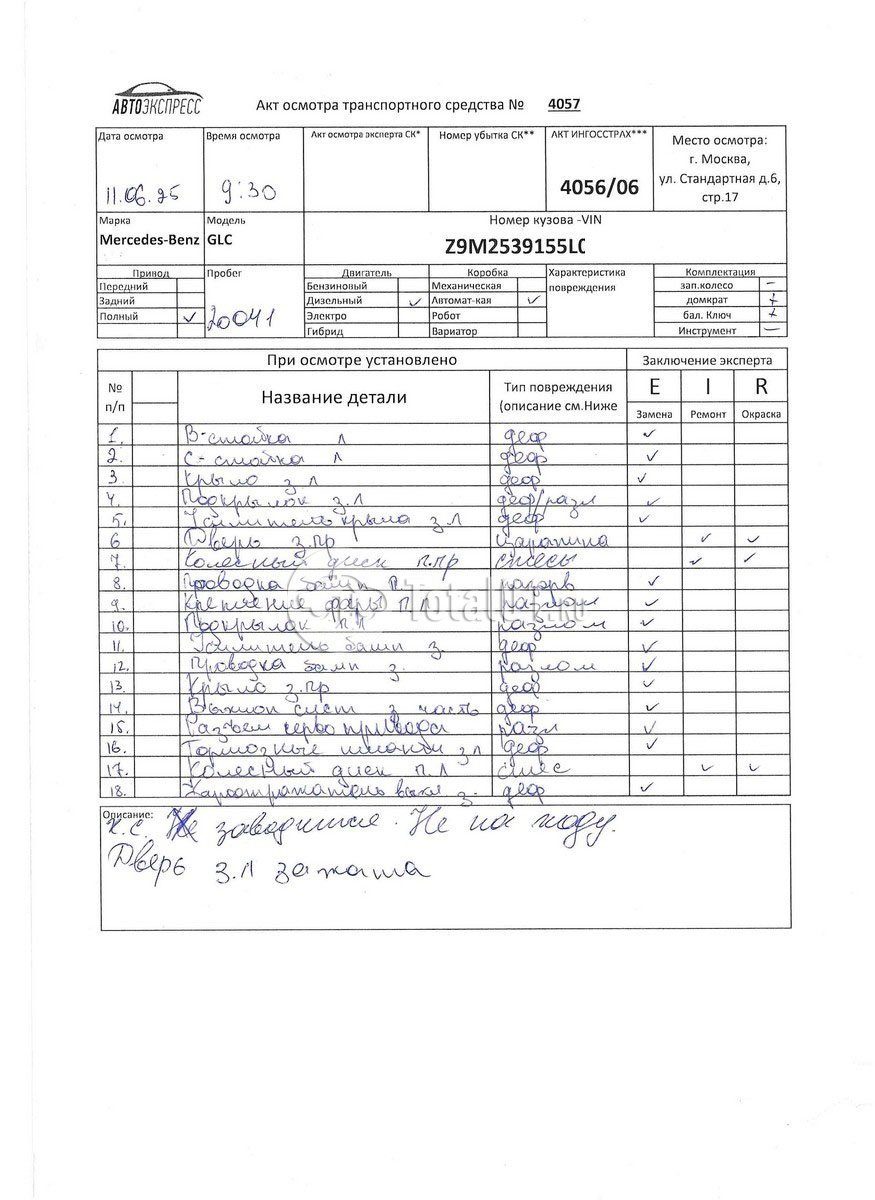 АВТОЭКСПРЕСС
Акт осмотра транспортного средства № 4057
Дата осмотра Время осмотра Акт осмотра эксперта СК* Номер убытка СК** АКТ ИНГОССТРАХ*** Место осмотра:
г. Москва,
11.06.25 9:30 4056/06 ул. Стандартная д.6,
стр.17
Марка Модель Номер кузова -VIN
Mercedes-Benz GLC Z9M2539155L0
Привод Пробег Двигатель Коробка Характеристика Комплектация
Передний Бензиновый Механическая повреждения зап.колесо —
Задний Дизельный ✓ Автомат-кая ✓ домкрат +
Полный ✓ 20041 Электро Робот бал. Ключ +
Гибрид Вариатор Инструмент —
При осмотре установлено Заключение эксперта
№ Название детали Тип повреждения E I R
п/п (описание см.Ниже Замена Ремонт Окраска
1. В-стойка л деф ✓
2. С-стойка л деф ✓
3. Крыло з л деф ✓
4. Подкрылок з.л деф/разл ✓
5. Усилитель крыла з л деф ✓
6 Дверь з.пр царапина ✓ ✓
7. Колесный диск п.пр срезы ✓ ✓
8. Проводка бамп п. разрв ✓
9. Крепление фары п л разлом ✓
10. Подкрылок п л разлом ✓
11. Усилитель бамп з. деф ✓
12. Проводка бамп з. разлом ✓
13. Крыло з.пр деф ✓
14. Выхлоп сист з часть деф ✓
15. Разъем сервопривода разл ✓
16. Тормозные шланги з л деф ✓
17. Колесный диск п.л ✓ ✓
18. з. деф ✓
Описание:
Не заводится. Не на ходу.
Дверь з.л зажата
TotalIt.ru